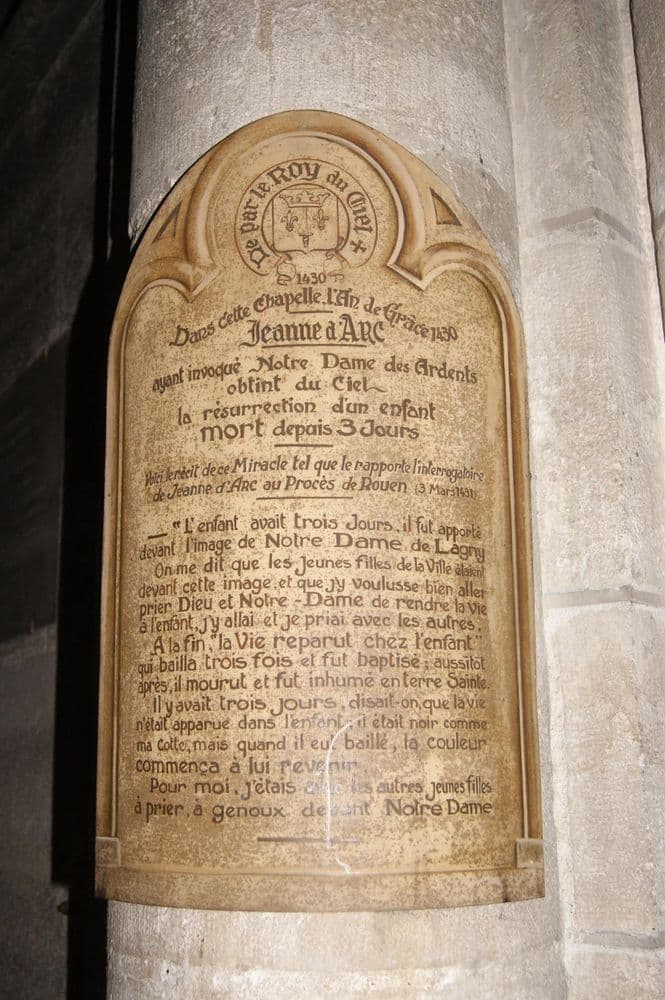 De par le ROY du Ciel
1430
Dans cette Chapelle, l'An de Grâce 1430
Jeanne d'ARC
ayant invoqué Notre Dame des Ardents
obtint du Ciel
la résurrection d'un enfant
mort depuis 3 Jours
Voici le récit de ce Miracle tel que le rapporte l'interrogatoire
de Jeanne d'Arc au Procès de Rouen (3 Mars 1431)
— "L'enfant avait trois Jours, il fut apporté
devant l'image de Notre Dame de Lagny
On me dit que les Jeunes filles de la Ville étaient
devant cette image, et que j'y voulusse bien aller
prier Dieu et Notre-Dame de rendre la vie
à l'enfant, j'y allai et je priai avec les autres.
A la fin, "la Vie reparut chez l'enfant"
qui bailla trois fois et fut baptisé; aussitôt
après, il mourut et fut inhumé en terre Sainte.
Il y avait trois jours, disait-on, que la vie
n'était apparue dans l'enfant; il était noir comme
ma Cotte, mais quand il eut baillé, la couleur
commença à lui revenir.
Pour moi, j'étais avec les autres jeunes filles
à prier, à genoux devant Notre Dame